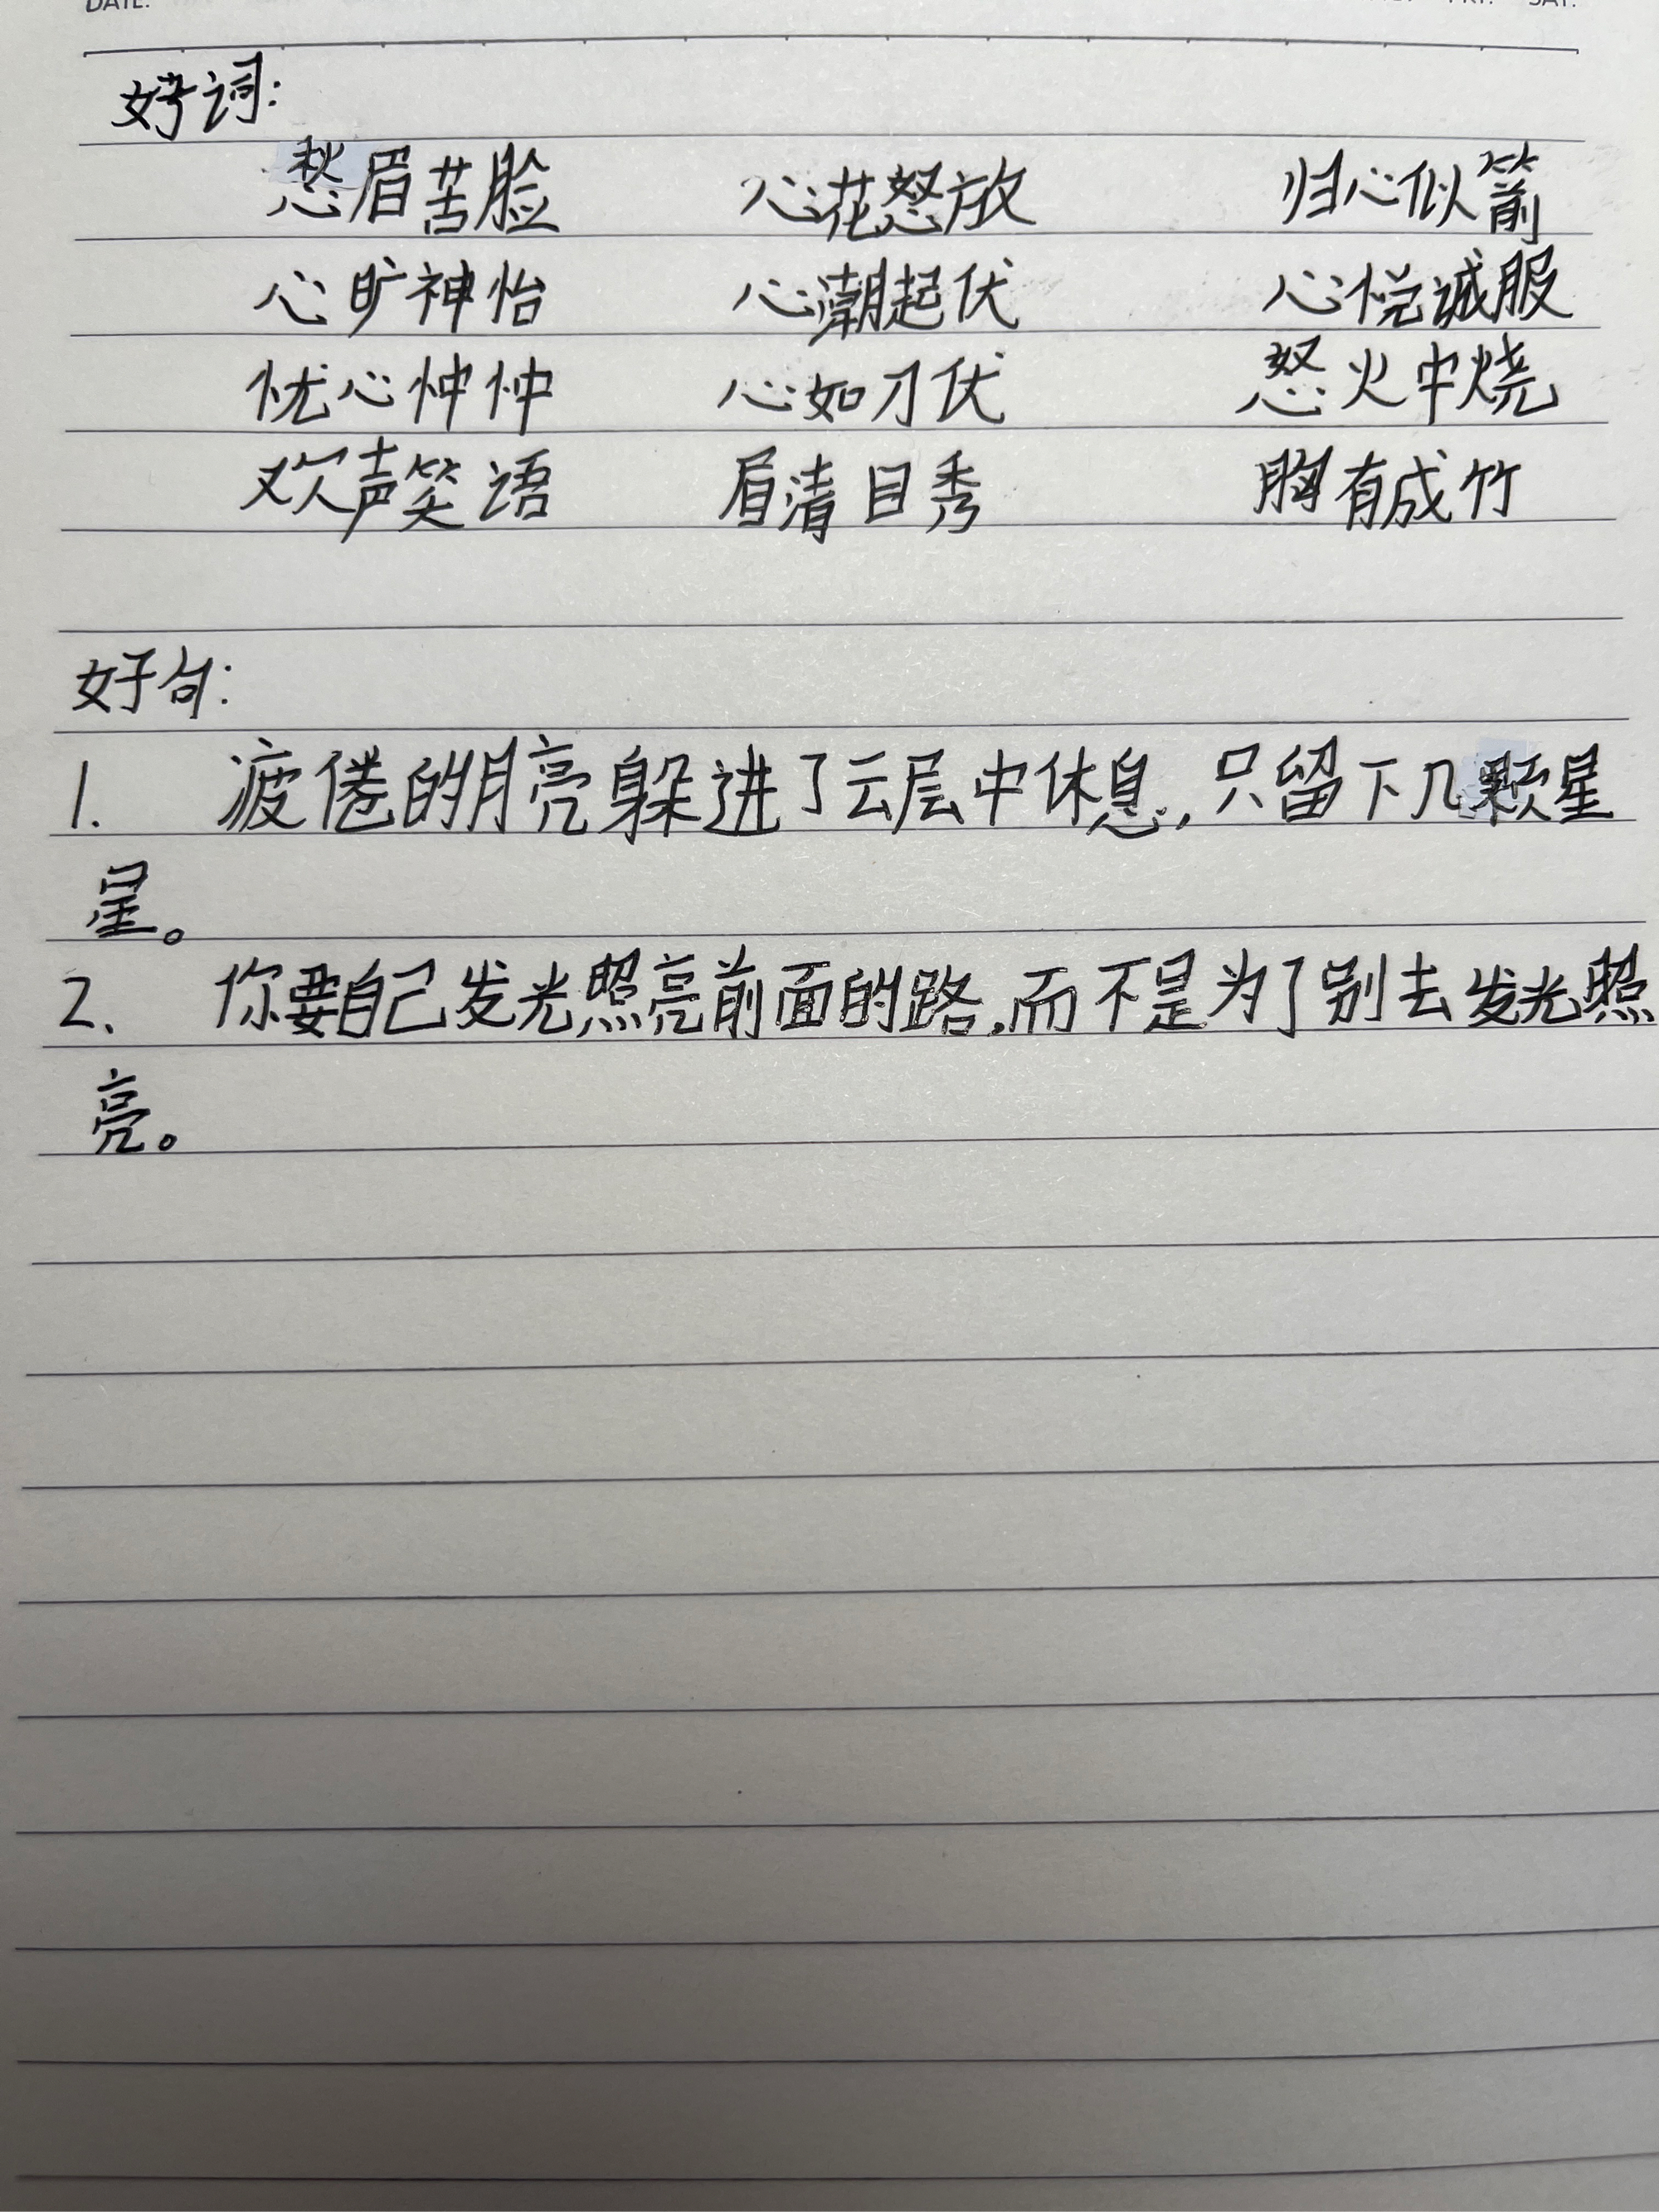 DATE:
好词:
愁眉苦脸 心花怒放 归心似箭
心旷神怡 心潮起伏 心悦诚服
忧心忡忡 心如刀伏 怒火中烧
欢声笑语 眉清目秀 胸有成竹
好句:
1. 疲倦的月亮躲进了云层中休息,只留下几颗星
星。
2. 你要自己发光照亮前面的路,而不是为了别去发光照
亮。